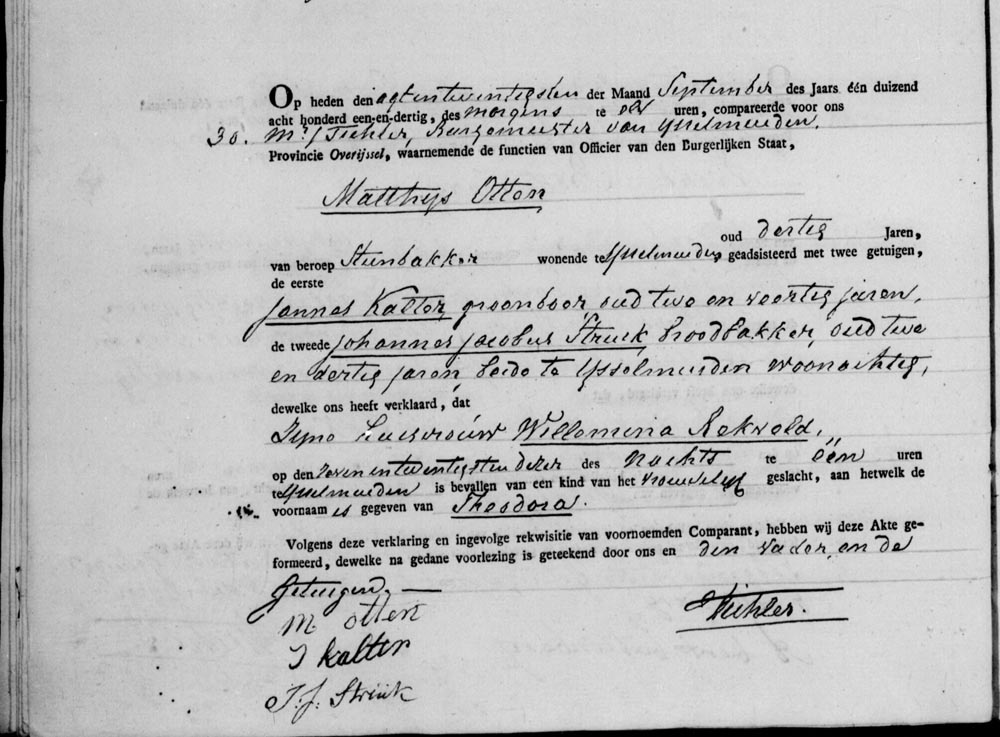 Op heden den agtentwentigsten der Maand September des Jaars één duizend
acht honderd een-en-dertig, des morgens te uren, compareerde voor ons
30. Mr. J Tichler, Burgemeester van Ysselmuiden,
Provincie Overijssel, waarnemende de functien van Officier van den Burgerlijken Staat,
Matthys Otten
oud dertig Jaren,
van beroep Steenbakker wonende te Ysselmuiden, geadsisteerd met twee getuigen,
de eerste
Jannes Kalter, groenboer, oud twe en veertig jaren,
de tweede Johannes Jacobus Strick, broodbakker, oud twe
en dertig jaren, beide te Ysselmuiden woonachtig,
dewelke ons heeft verklaard, dat
Zyne huisvrouw Willemina Rekveld,
op den zevenentwentigsten dezer des Nachts te één uren
te Ysselmuiden is bevallen van een kind van het vrouwelyk geslacht, aan hetwelk de
voornaam is gegeven van Theodora.
Volgens deze verklaring en ingevolge rekwisitie van voornoemden Comparant, hebben wij deze Akte ge-
formeerd, dewelke na gedane voorlezing is geteekend door ons en den vader en de
getuigen.
M Otten
Tichler.
J Kalter
J. J. Strick